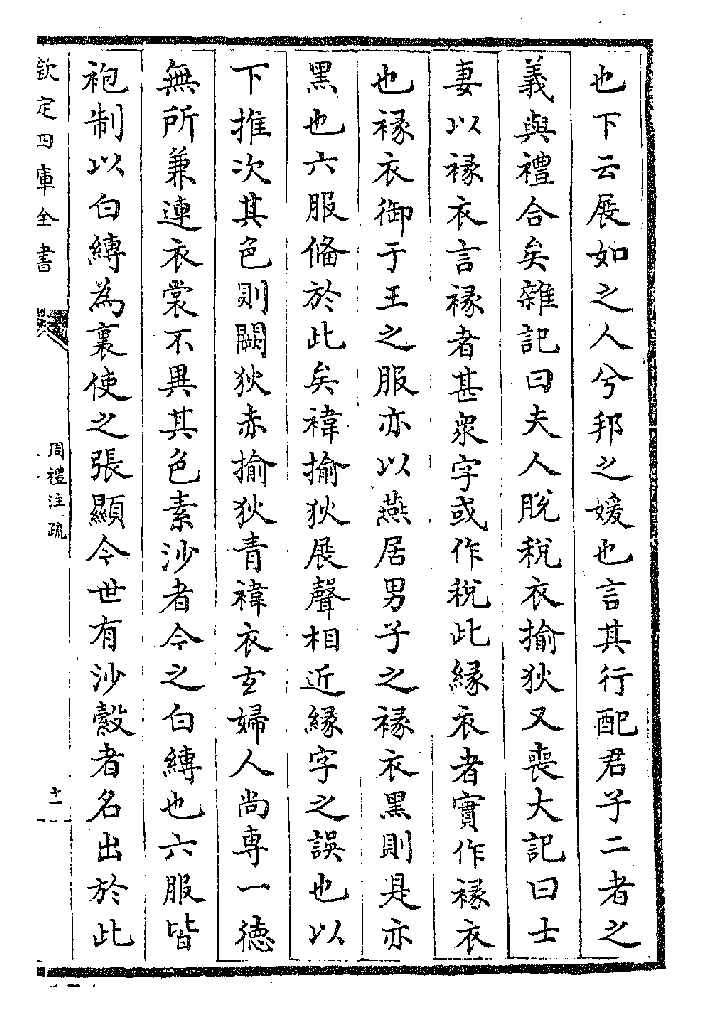 也下云展如之人兮邦之媛也言其行配君子二者之
義與禮合矣雜記曰夫人脫稅衣揄狄又喪大記曰士
妻以褖衣言褖者甚衆字或作稅此緣衣者實作褖衣
也褖衣御于王之服亦以燕居男子之褖衣黑則是亦
黑也六服備於此矣褘揄狄展聲相近緣字之誤也以
下推次其色則闕狄赤揄狄青褘衣玄婦人尚專一德
無所兼連衣裳不異其色素沙者今之白縳也六服皆
袍制以白縳為裏使之張顯今世有沙縠者名出於此
欽定四庫全書
周禮注疏
十一